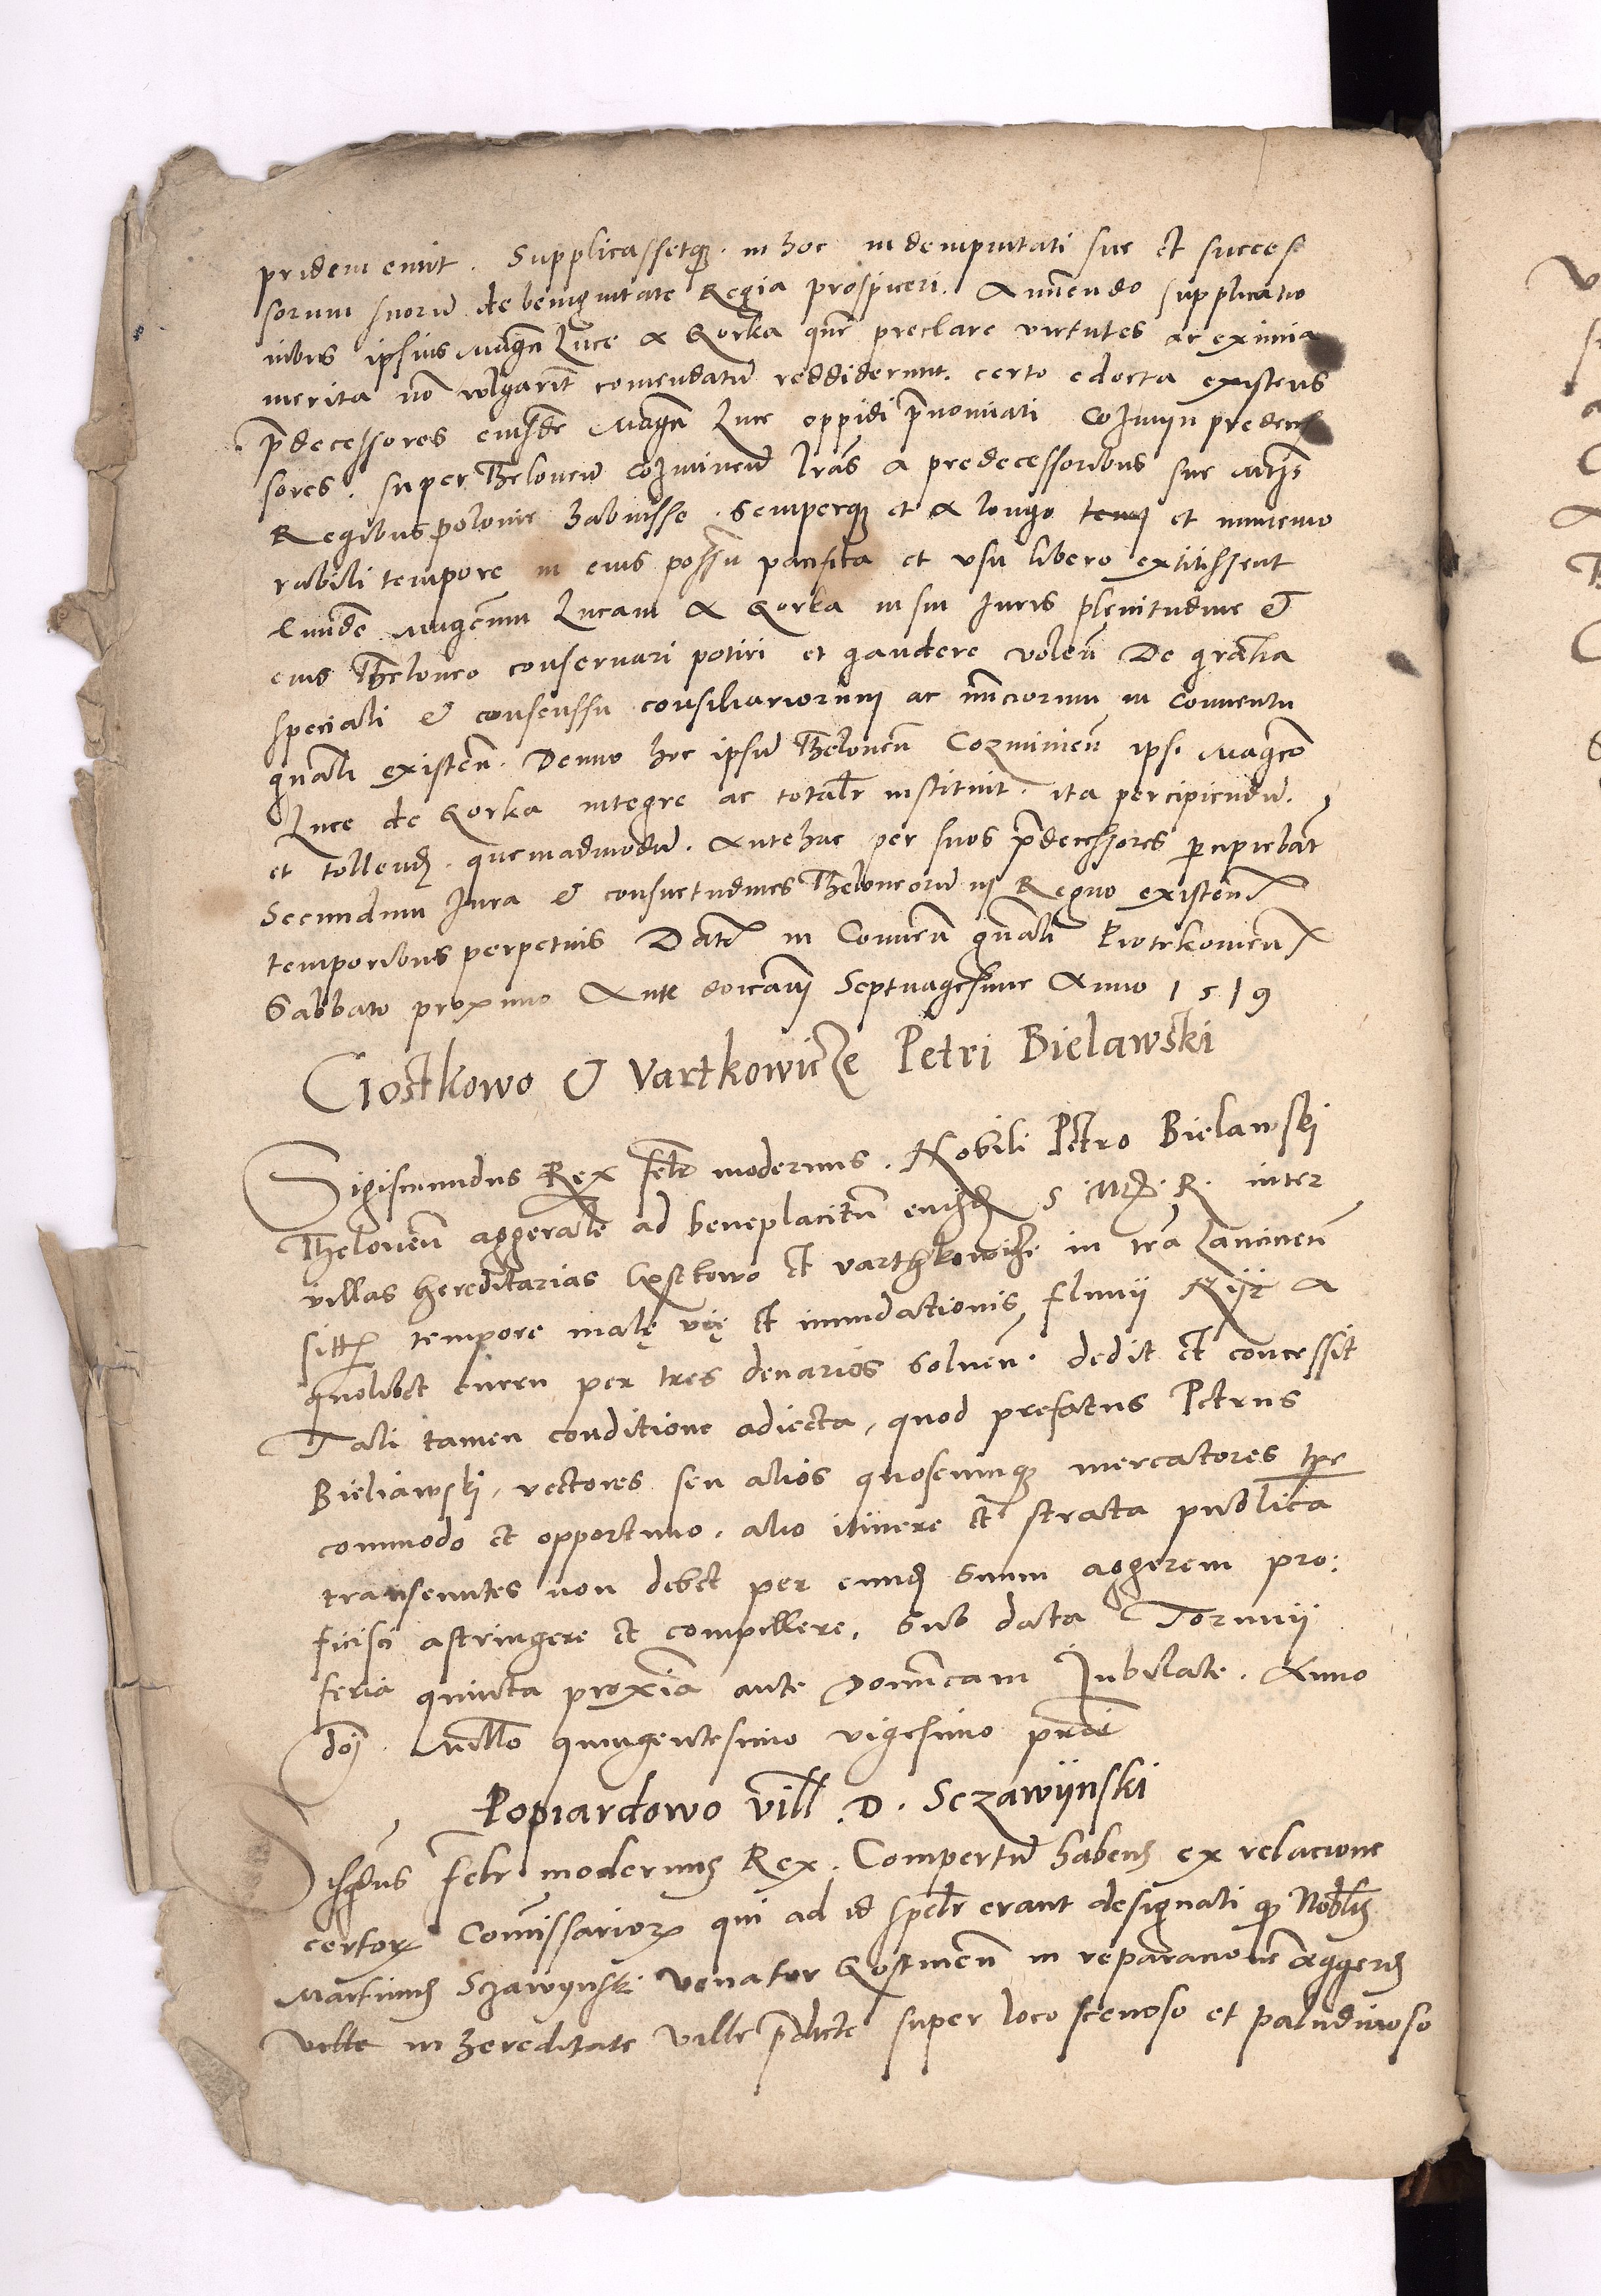 pridem emit. Supplicassetq₃ in hoc indempnitati sue et succes
sorum suorū de benignitate Regia prospiceri. Annuendo supplicatio
nibus ipsius Magc̄i Luce a Gorka quē preclare virtutes ac eximia
merita nō vlgarit̄ comendatū reddiderunt. certo edocta existens
p̄decessores eiusdē Magc̄i Luce oppidi p̄nomiati Cozmyn predeces
sores. super Theloneū Cozminen̄ lrās a predecessoribus sue Mtis
Regibus polonie habuisse. Semperq₃ et a longo et immemo
rabili tempore in eius possn̄ pacifica et vsu libero extitissent
Eundē Magcum Lucam a Gorka in sui Iuris plenitudine &
eius Theloneo conseruari potiri et gaudere volen̄ De gratia
speciali & consenssu consiliariorum ac nunciorum in conuentu
gn̄ali existen̄. Denuo hoc ipsū Theloneū Cozminien̄ ipsi Magco
Luce de Gorka integre ac totalr̄ instituit. ita percipiendū.
et tollend. quemadmodū. Antehac per suos p̄decessores percipiebat̄
Secundum Iura & consuetudines Theloneorū in Regno existen̄
temporibus perpetuis Dat̄ in Conuen̄ gn̄ali Piotrkouien̄
Sabbato proximo Ante doicam Septuagesime Anno 1519
Ciostkowo & Vartkowicze Petri Bielawski
Sigismundus Rex felr̄ modernus. Nobili Petro Bielawski
Theloneū aggerale ad beneplacitum eiusd S. Mtis. R. inter
villas hereditarias et varthkowicze in trā Lancicien̄
sitt tempore malę vię et inundationis fluuii Nyr a
quolibet equo per tres denarios soluen̄. dedit et concessit
Tali tamen conditione adiecta, quod prefatus Petrus
Bieliawski, vectores seu alios quoscunq₃ mercatores tp̄e
commodo et opportuno. alio itinere et strata publica
transeuntes non debet per eund suum aggerem pro:
ficisci astringere et compellere. Sub data Torunii
feria quinta proxīa ante Dominicam Iubilate. Anno
dnj. Millo quingentesimo vigesimo
Popiardowo vill. D. Sczawijnski
Sigsdus felr modernus Rex. Compertū habens ex relacione
certor₄ Comissarior₄ qui ad id spēlr erant designati q₃ Nobilis
Martinus Sczawynski venator Gostinen̄ in reparatione aggeris
ville in hereditate ville p̄dicte super loco scenoso et paludinoso